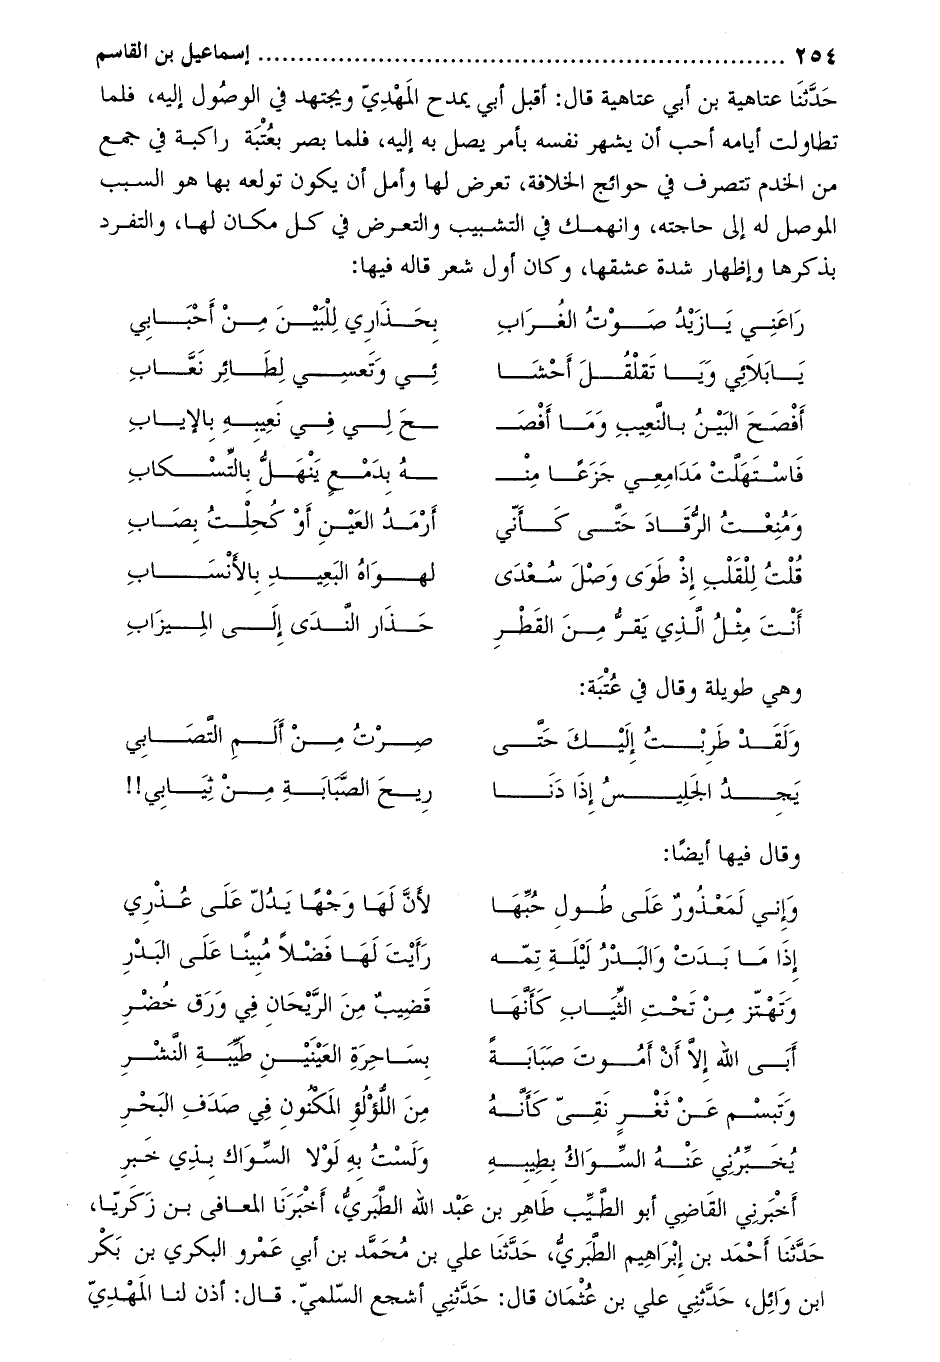 ٢٥٤ .................................................................. إسماعيل بن القاسم
حَدَّثَنَا عتاهية بن أبي عتاهية قال: أقبل أبي يمدح المَهْدِيّ ويجتهد في الوصُول إليه، فلما
تطاولت أيامه أحب أن يشهر نفسه بأمر يصل به إليه، فلما بصر بعُتْبَة راكبة في جمع
من الخدم تتصرف في حوائج الخلافة، تعرض لها وأمل أن يكون تولعه بها هو السبب
الموصل له إلى حاجته، وانهمك في التشبيب والتعرض في كل مكان لها، والتفرد
بذكرها وإظهار شدة عشقها، وكان أول شعر قاله فيها:
رَاعَنِي يَا زَيْدُ صَوْتُ الغُرَابِ بِحَذَارِي لِلْبَيْنَ مِنْ أَحْبَابِي
يَا بَلاَئِي وَيَا تَقَلْقُلَ أَحْشَا ئِي وَتَعسِي لِطَائِرِ نَعَّابِ
أَفْصَحَ البَيْنُ بِالنَّعِيبِ وَمَا أَفْصَـ ـحَ لِي فِي نَعِيبِهِ بالإِيابِ
فَاسْتَهَلَّتْ مَدَامِعِي جَزَعًا مِنْـ ـهُ بِدَمْعٍ يَنْهَلُّ بالتِّسْكابِ
وَمُنِعْتُ الرُّقَادَ حَتَّى كَأَنِّي أَرْمَدُ العَيْنِ أَوْ كُحِلْتُ بِصَابِ
قُلْتُ لِلْقَلْبِ إِذْ طَوَى وَصْلَ سُعْدَى لهوَاهُ البَعِيدِ بالأَنْسَابِ
أَنْتَ مِثْلُ الَّذِي يَقرُّ مِنَ القَطْرِ حَذَار النَّدَى إِلَى المِيزَابِ
وهي طويلة وقال في عُتْبَة:
وَلَقَدْ طَرِبْتُ إِلَيْكَ حَتَّى صِرْتُ مِنْ أَلَمِ التَّصَابِي
يَجِدُ الجَلِيسُ إِذَا دَنَا رِيحَ الصَّبَابَةِ مِنْ ثِيَابِي!!
وقال فيها أيضًا:
وَإِني لَمَعْذُورٌ عَلَى طُولِ حُبِّهَا لأَنَّ لَهَا وَجْهًا يَدُلّ عَلَى عُذْرِي
إِذَا مَا بَدَتْ وَالبَدْرُ لَيْلَةِ تِمّه رَأَيْتَ لَهَا فَضْلاً مُبينًا عَلَى البَدْرِ
وَتَهْتَزّ مِنْ تَحْتِ الثِّيَابِ كَأَنَّهَا قَضِيبٌ مِنَ الرَّيْحَانِ فِي وَرَق خُضْرِ
أَبَى الله إِلاَّ أَنْ أَمُوتَ صَبَابَةً بِسَاحِرَةِ العَيْنَيْنِ طَيِّبَةِ النَّشْرِ
وَتَبسم عَنْ ثَغْرٍ نَقِيّ كَأَنَّهُ مِنَ اللُّؤْلُؤِ المَكْنُون فِي صَدَفِ البَحْرِ
يُخَبِّرُنِي عَنْهُ السِّوَاكُ بِطِيبِهِ وَلَسْتُ بِهِ لَوْلا السِّوَاك بِذِي خبرِ
أَخْبَرَنِي القَاضِي أبو الطَّيِّب طَاهِر بن عَبْد الله الطَّبَرِيُّ، أَخْبَرَنَا المعافى بن زَكَرِيّا،
حَدَّثَنَا أَحْمَد بن إِبْرَاهِيم الطَّبَرِيُّ، حَدَّثَنَا علي بن مُحَمَّد بن أبي عَمْرو البكري بن بَكْر
ابن وَائِل، حَدَّثَنِي علي بن عُثْمَان قال: حَدَّثَنِي أشجع السّلميّ. قال: أذن لنا المَهْدِيّ